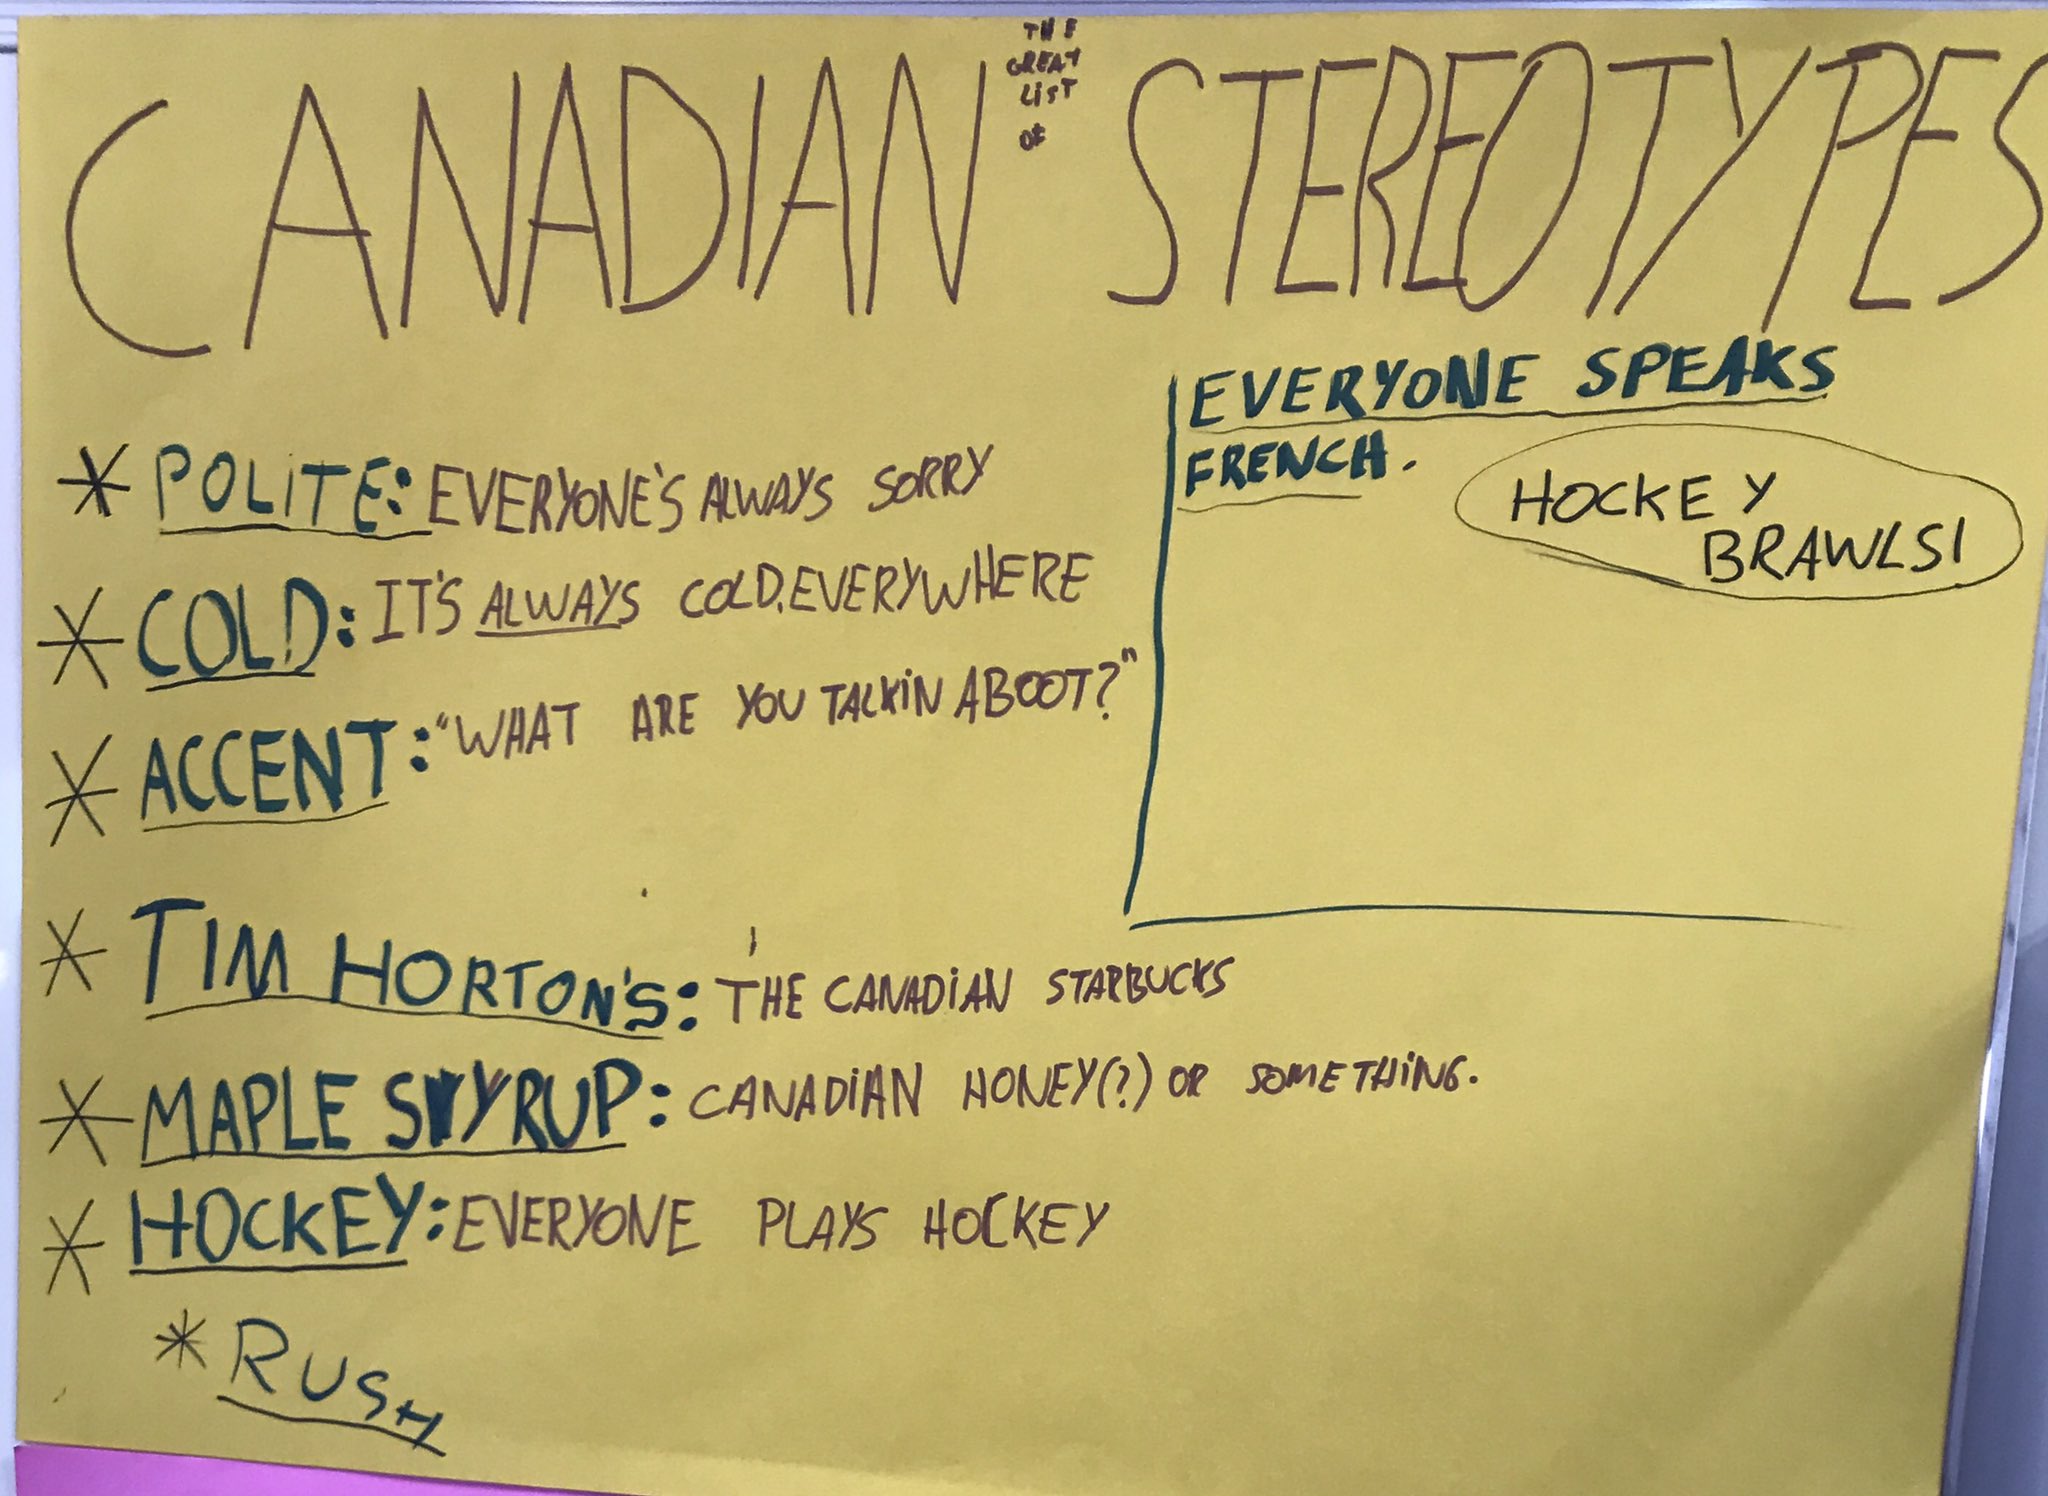 THE
GREAT
LIST
OF
CANADIAN STEREOTYPES
* POLITE: EVERYONE'S ALWAYS SORRY
* COLD: IT'S ALWAYS COLD. EVERYWHERE
* ACCENT: "WHAT ARE YOU TALKIN ABOOT?"
EVERYONE SPEAKS
FRENCH.
HOCKEY
BRAWLS!
* TIM HORTON'S: THE CANADIAN STARBUCKS
* MAPLE SYRUP: CANADIAN HONEY(?) OR SOMETHING.
* HOCKEY: EVERYONE PLAYS HOCKEY
* RUSH